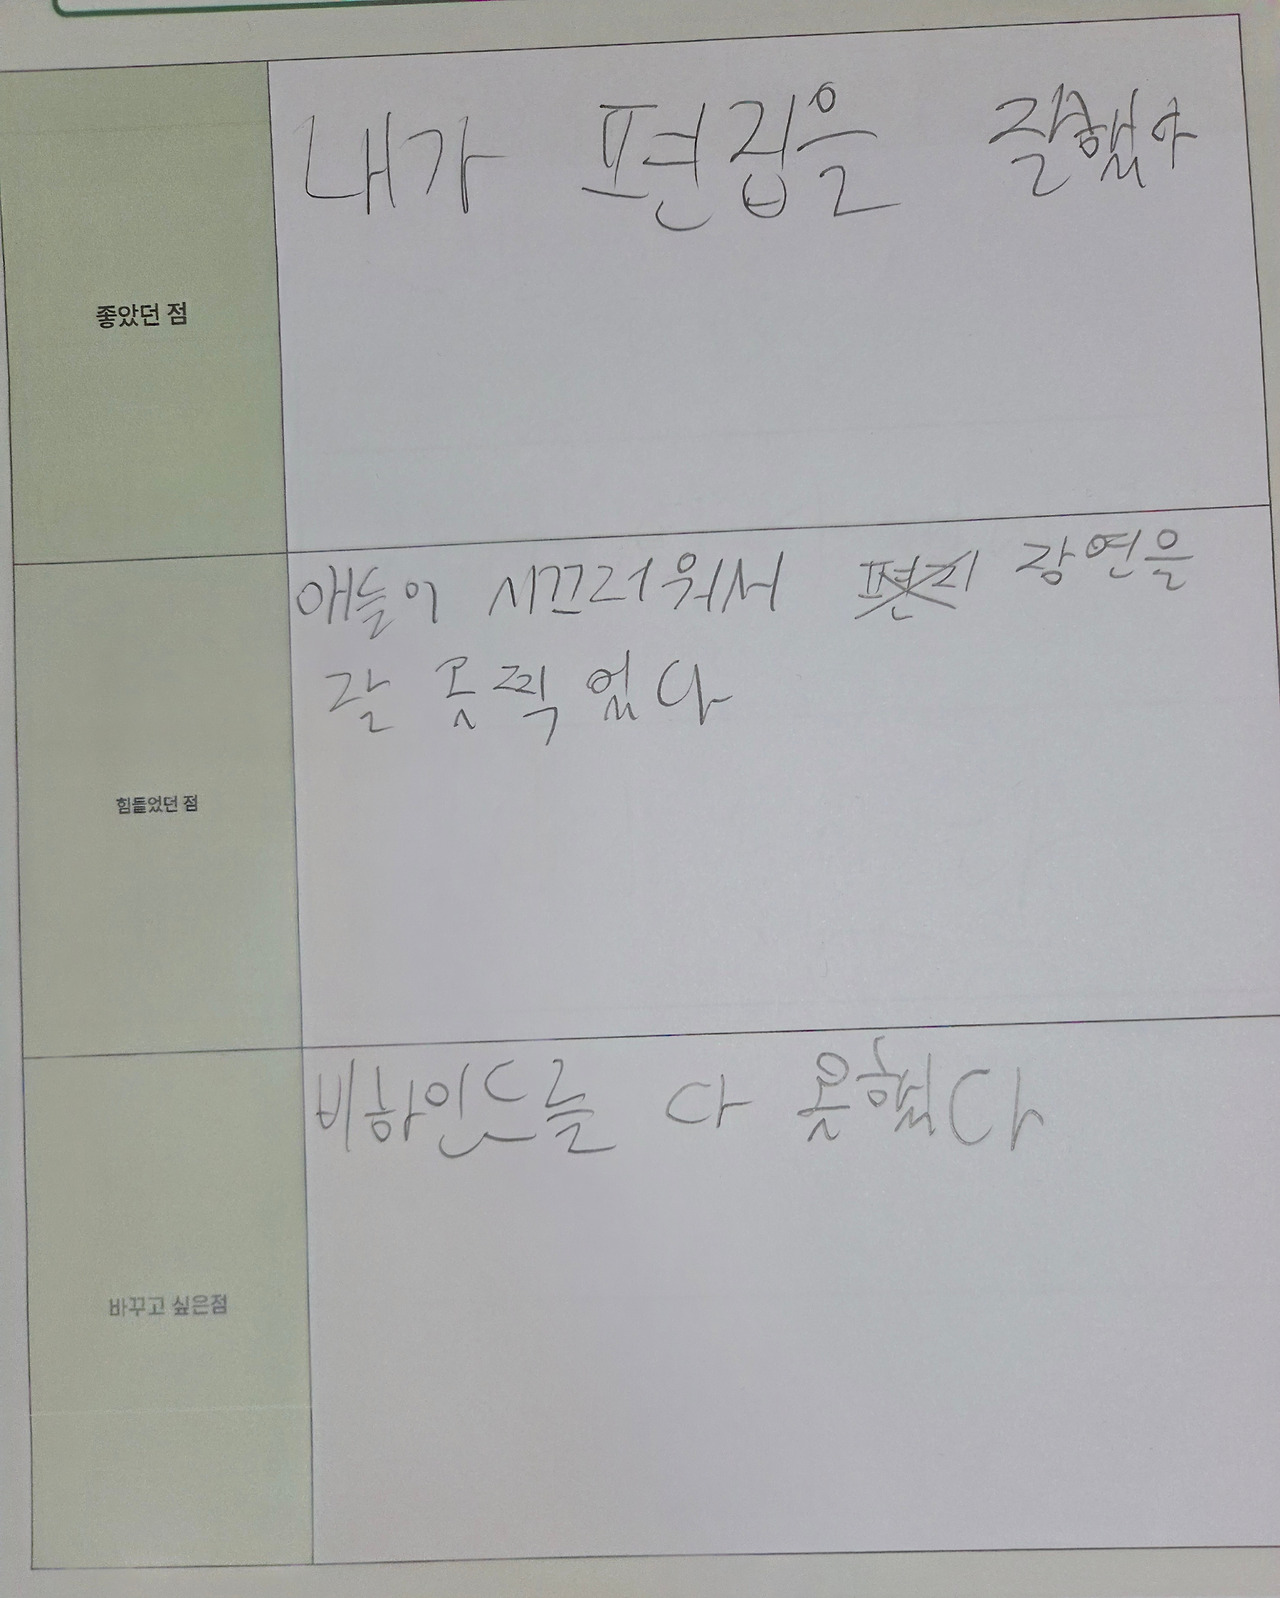 좋았던 점
내가 편집을 잘했다
힘들었던 점
애들이 시끄러워서 편지 장연을
잘 못찍었다
바꾸고 싶은점
비하인드를 다 못했다